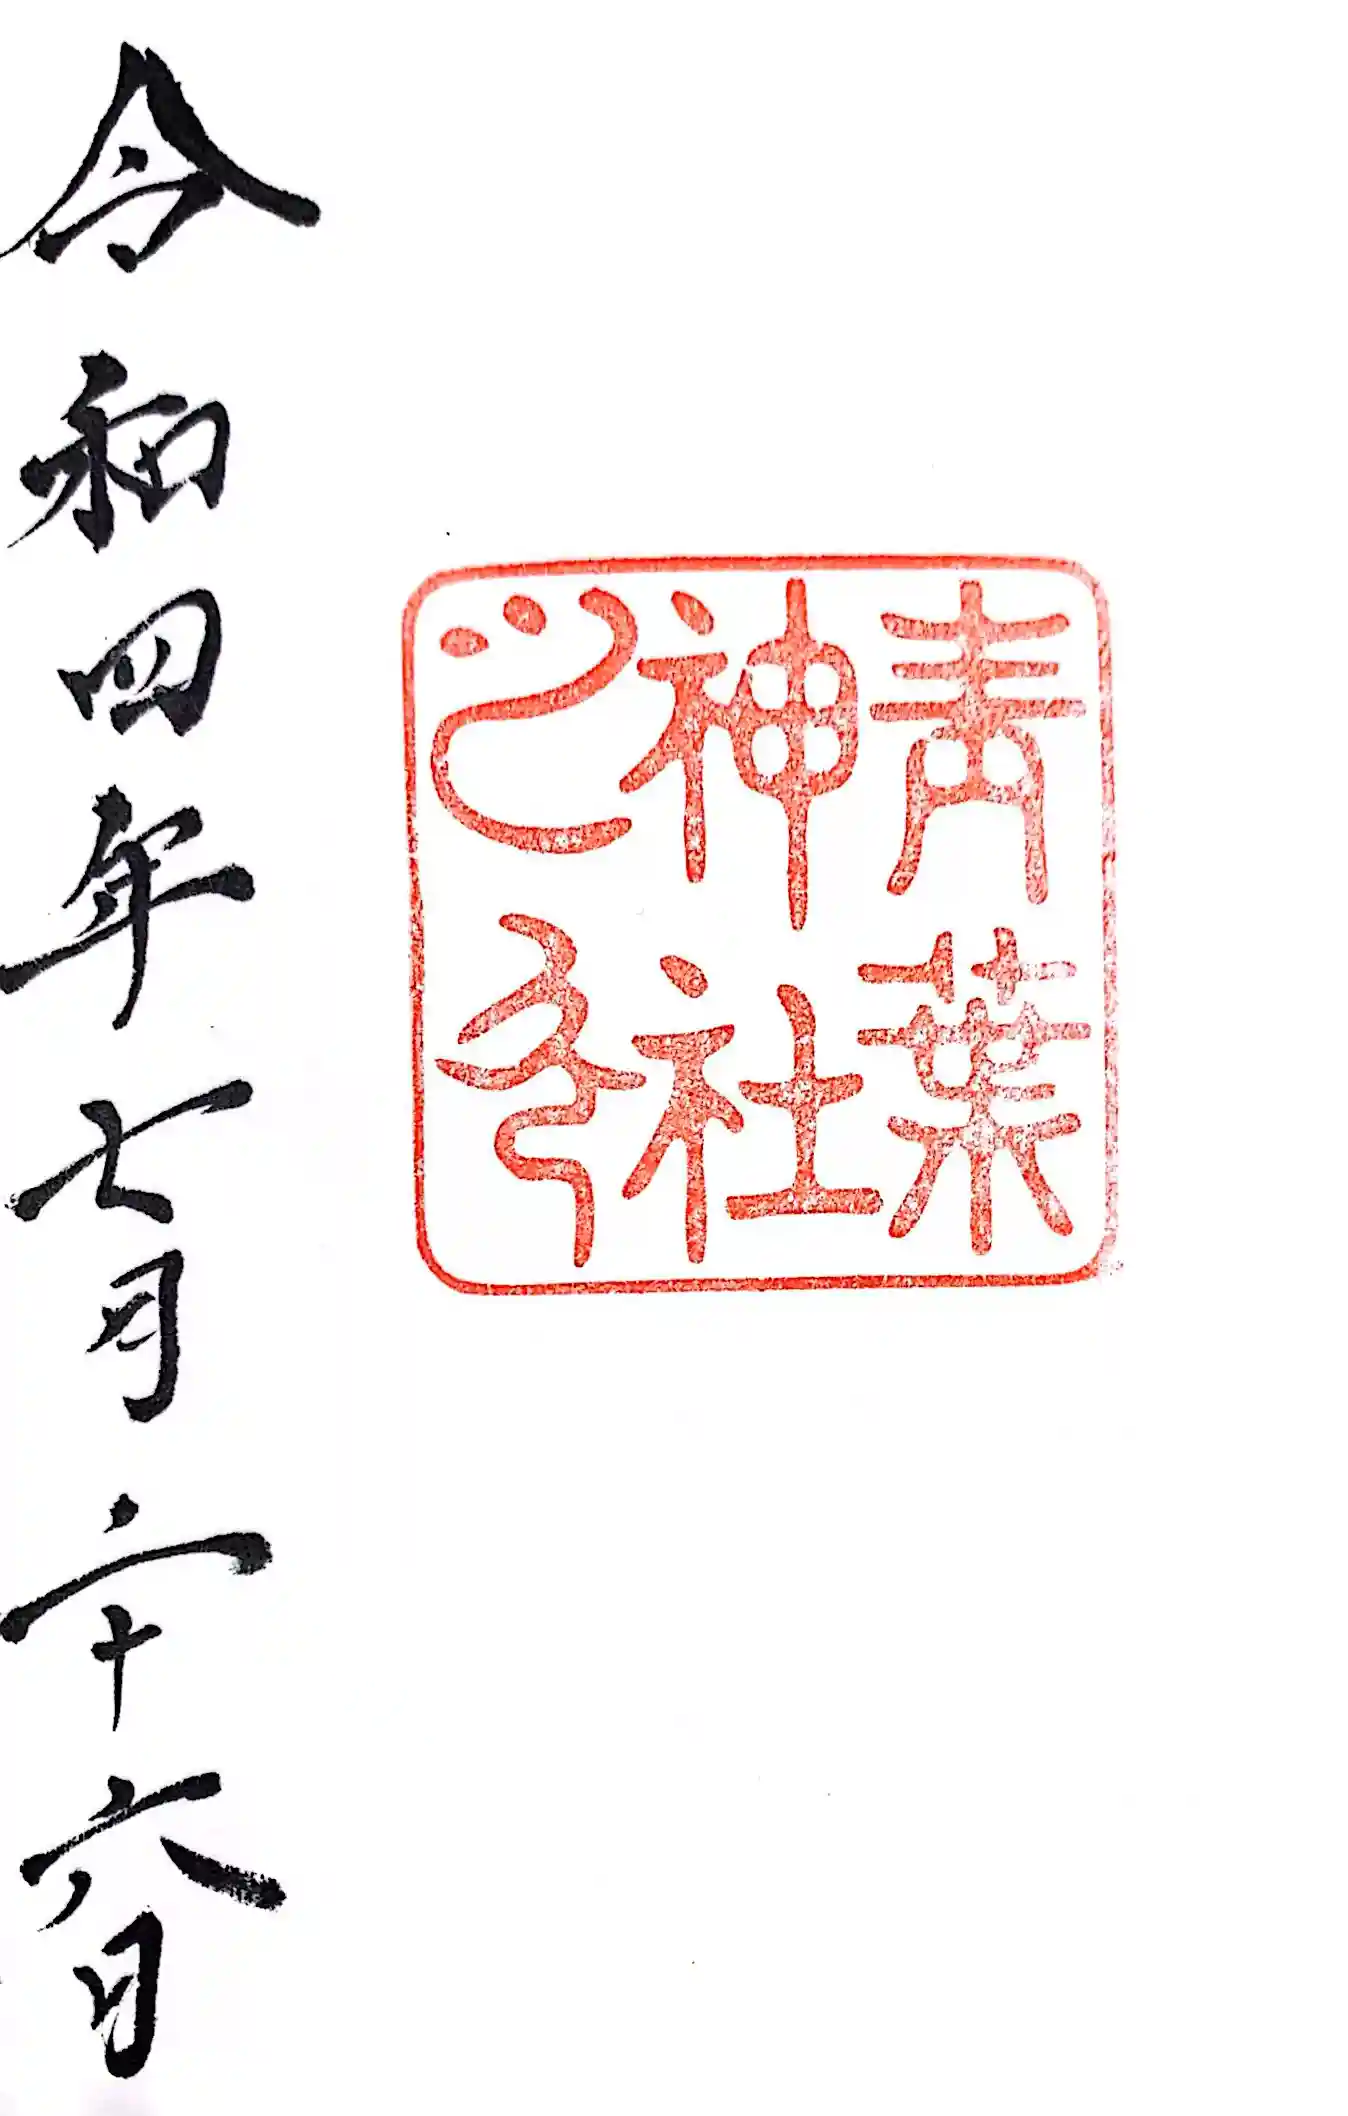 青葉
神社
之印
令和四年七月二十六日